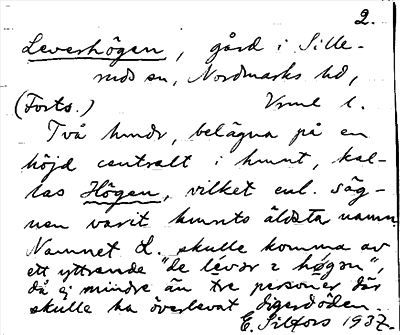 2.
Leverhögen, gård i Sille-
ruds sn, Nordmarks hd,
(Forts.) Vrml l.
Två hmdr, belägna på en
höjd centralt i hmnt, kal-
las Högen, vilket enl. säg-
nen varit hmnts äldsta namn.
Namnet L. skulle komma av
ett yttrande "de lévər i høgən",
då ej mindre än tre personer där
skulle ha överlevat digerdöden.
E. Silfors 1937.